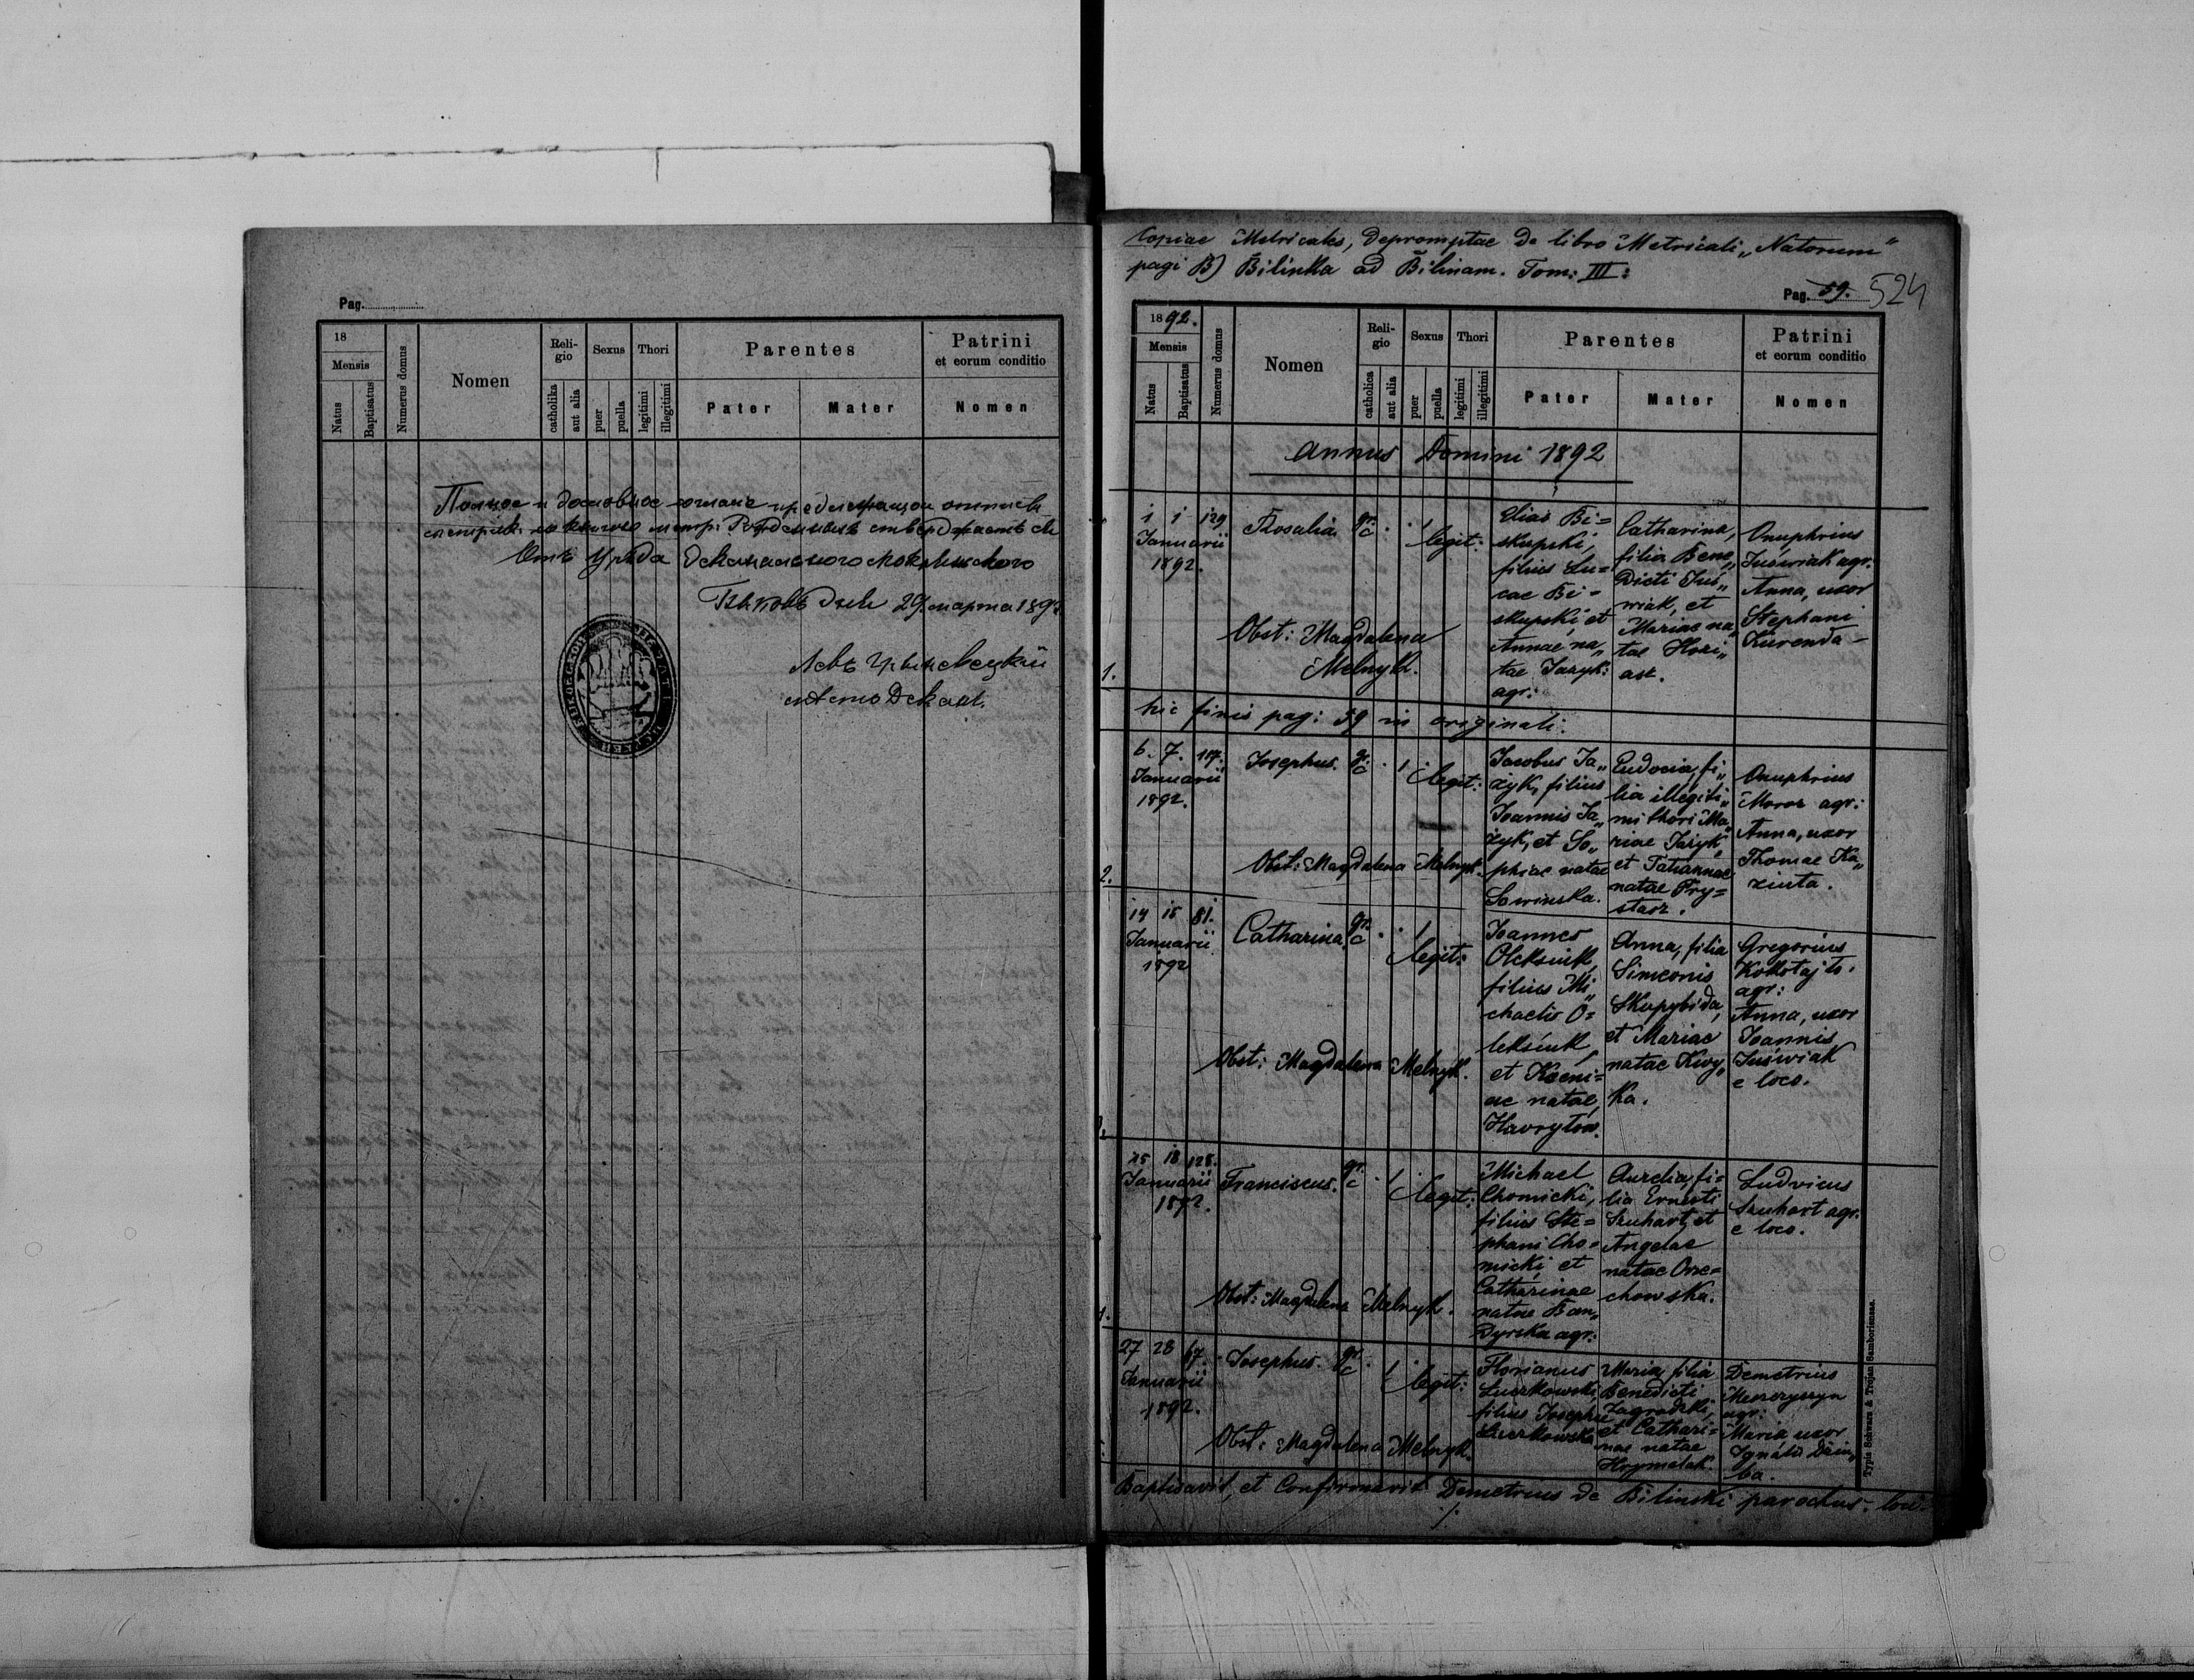 Pag.
18
Mensis
Natus
Baptisatus
Numerus domus
Nomen
Religio
catholika
aut alia
Sexus
puer
puella
Thori
legitimi
illegitimi
Parentes
Pater
Mater
Patrini
et eorum conditio
Nomen
Полное и дословное
Отъ Уряда Деканального
дня 29 марта 189
Левъ
Декан.
Copiae Metricales, depromptae de libro Metricali „Natorum"
pagi B) Bilinka ad Bilinam. Tom: III:
Pag. 59. 524
1892.
Mensis
Natus
Baptisatus
Numerus domus
Nomen
Religio
catholica
aut alia
Sexus
puer
puella
Thori
legitimi
illegitimi
Parentes
Pater
Mater
Patrini
et eorum conditio
Nomen
Annus Domini 1892
1.
1 1 129
Januarii
1892.
Rosalia
gr. c.
legit:
Obst: Magdalena
Melnyk.
Elias Bi=
skupski,
filius Lu=
cae Bi=
skupski, et
Annae na„
tae Jazyk:
agr:
Catharina,
filia Bene„
dicti Juś„
wiak, et
Mariae na„
tae Hori„
ast.
Onuphrius
Juświak agr.
Anna, uxor
Stephani
Kurenda
hic finis pag: 59 in originali.
2.
6. 7. 117.
Januarii
1892.
Josephus.
gr. c
legit:
Obst: Magdalena Melnyk.
Jacobus Ja„
zyk, filius
Joannis Ja„
zyk, et So„
phiae natae
Sawinska.
Eudocia, fi„
lia illegiti„
mi thori Ma„
riae Jazyk,
et Tatiannae
natae Pry=
starz.
Onuphrius
Moroz agr:
Anna, uxor
Thomae Ka„
ziuta.
14 15 81.
Januarii
1892
Catharina.
gr. c
legit:
Obst: Magdalena Melnyk.
Joannes
Oleksiuk,
filius Mi„
chaelis O=
leksiuk
et Kseni=
ae natae
Havryłow.
Anna, filia
Simeonis
Skupybida,
et Mariae
natae Kwy„
ka.
Gregorius
Kołłotajło.
agr:
Anna, uxor
Joannis
Juświak
e loco.
15 18 128.
Januarii
1892.
Franciscus.
gr. c
legit:
Obst: Magdalena Melnyk.
Michael
Chomicki,
filius Ste=
phani Cho=
micki et
Catharinae
natae Ban„
dyrska agr:
Aurelia, fi=
lia Ernesti
Szuhart, et
Angelae
natae Orze=
chowska.
Ludvicus
Szuhart agr.
e loco.
27 28 67.
Januarii
1892.
Josephus.
gr. c
legit:
Obst: Magdalena Melnyk.
Florianus
Łuczkowski,
filius Josephi
Łuczkowska
Maria, filia
Benedicti
Zagrodzki,
et Cathari=
nae natae
Hrymalak.
Demetrius
Meszczyszyn
agr:
Maria uxor
Ignatii Dziu„
ba.
Baptisavit, et Confirmavit Demetrius de Bilinski parochus. loci.
Typis Schwarz & Trojan Samboriensas.